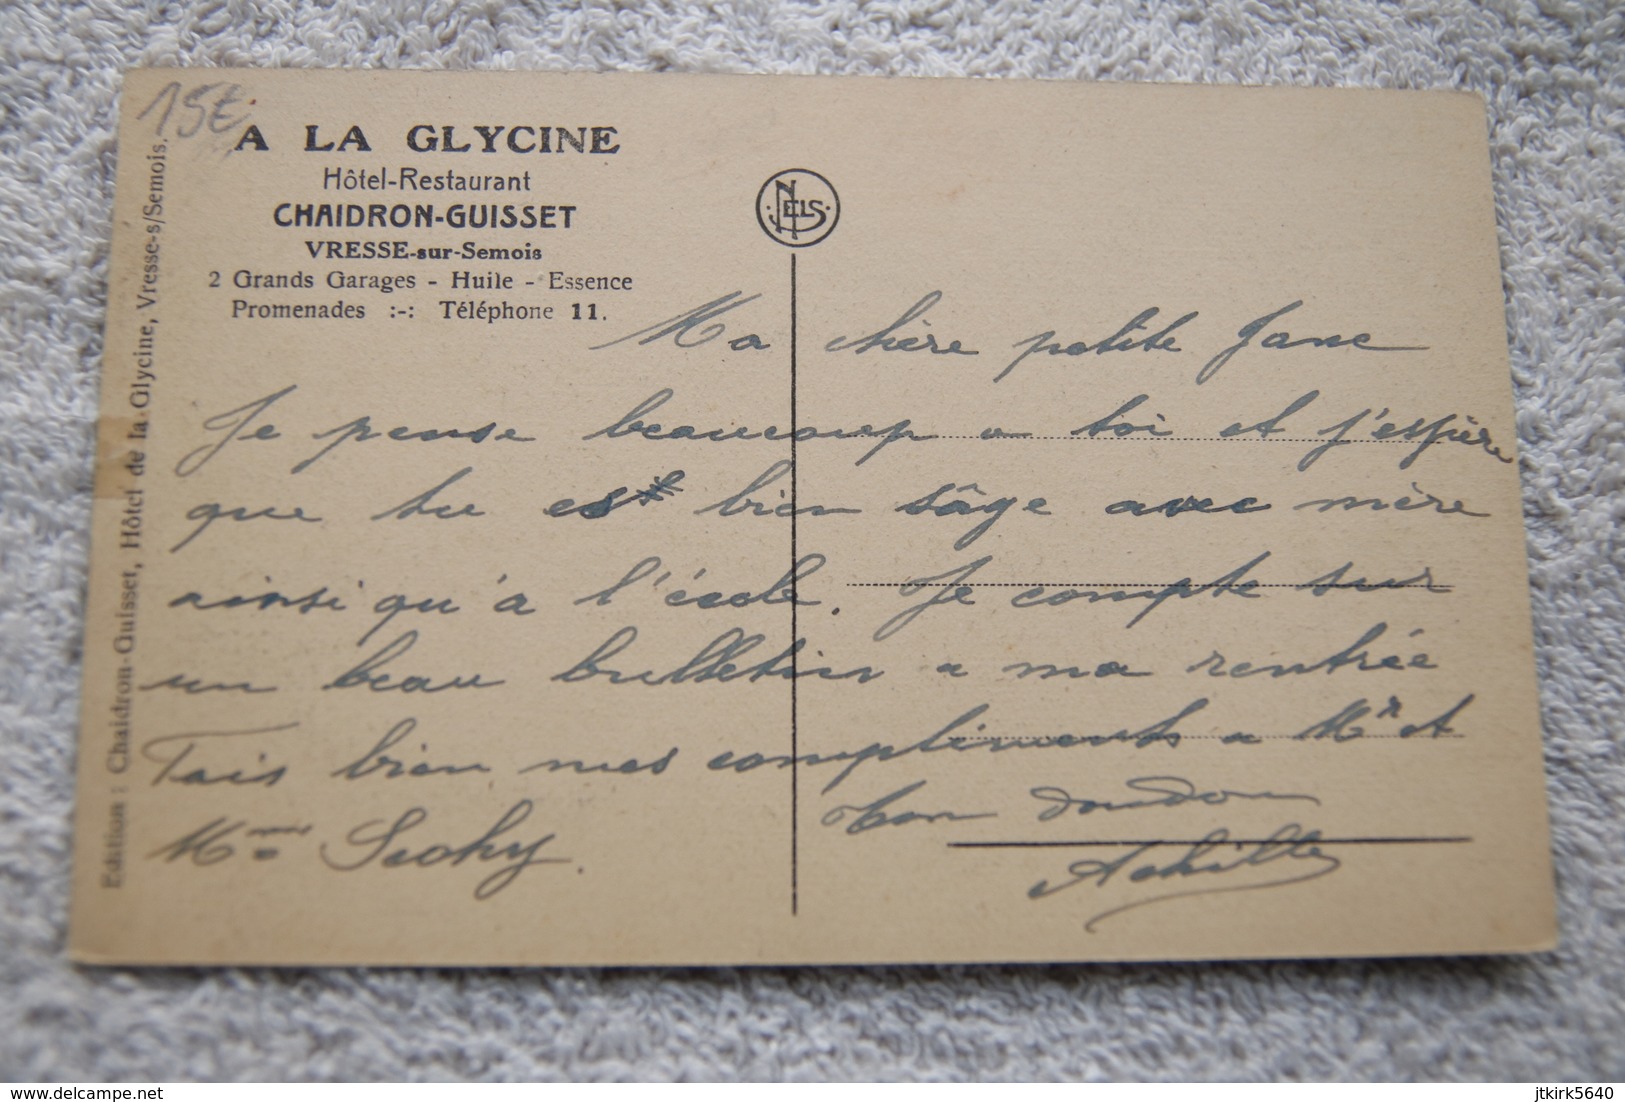 15€
A LA GLYCINE
Hôtel-Restaurant
CHAIDRON-GUISSET
VRESSE-sur-Semois
2 Grands Garages - Huile - Essence
Promenades :-: Téléphone 11.
NELS
Edition : Chaidron-Guisset, Hôtel de la Glycine, Vresse-s/Semois.
Ma chère petite Jane
Je pense beaucoup a toi et j'espère
que tu es bien sâge avec mère
ainsi qu'a l'école. Je compte sur
un beau bulletin a ma rentrée
Fais bien mes compliments a Mr et
Mme Sechy.
ton doudou
Achille
www.delcampe.net
jtkirk5640